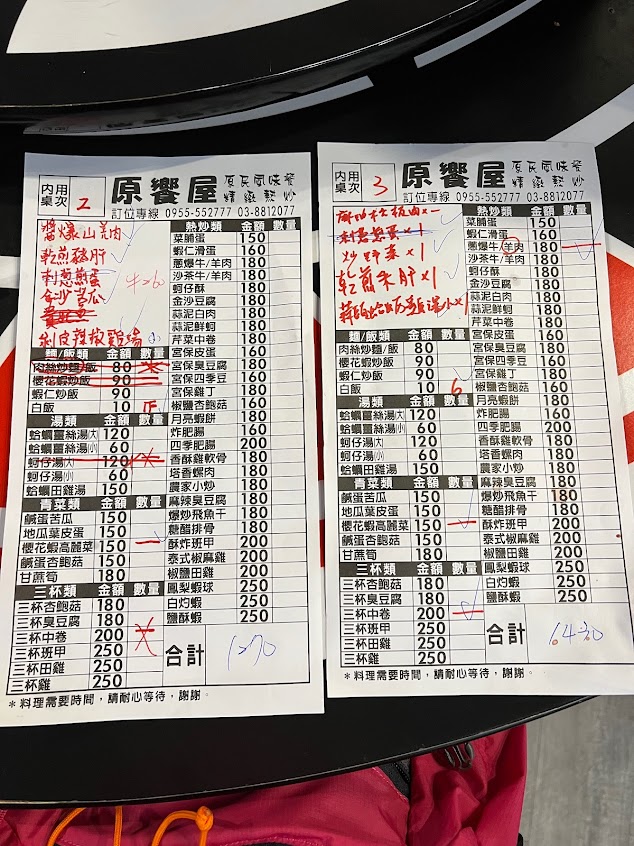 內用
桌次
2
原饗屋
原民風味餐
精緻熱炒
訂位專線 0955-552777 03-8812077
醬爆山羌肉
乾煎豬肝
刺蔥煎蛋
金沙苦瓜
剝皮辣椒雞湯 小
麵/飯類 金額 數量
肉絲炒麵/飯 80
櫻花蝦炒飯 90
蝦仁炒飯 90
白飯 10 正
湯類 金額 數量
蛤蠣薑絲湯大 120
蛤蠣薑絲湯小 60
蚵仔湯大 120
蚵仔湯小 60
蛤蠣田雞湯 150
青菜類 金額 數量
鹹蛋苦瓜 150
地瓜葉皮蛋 150
櫻花蝦高麗菜 150 一
鹹蛋杏鮑菇 150
甘蔗筍 180
三杯類 金額 數量
三杯杏鮑菇 180
三杯臭豆腐 180
三杯中卷 200
三杯班甲 250
三杯田雞 250
三杯雞 250
熱炒類 金額 數量
菜脯蛋 150
蝦仁滑蛋 160
蔥爆牛/羊肉 180
沙茶牛/羊肉 180
蚵仔酥 180
金沙豆腐 180
蒜泥白肉 180
蒜泥鮮蚵 180
芹菜中卷 180
宮保皮蛋 160
宮保臭豆腐 180
宮保四季豆 160
宮保雞丁 180
椒鹽杏鮑菇 160
月亮蝦餅 180
炸肥腸 160
四季肥腸 200
香酥雞軟骨 180
塔香螺肉 180
農家小炒 180
麻辣臭豆腐 180
爆炒飛魚干 180
糖醋排骨 180
酥炸班甲 200
泰式椒麻雞 200
椒鹽田雞 200
鳳梨蝦球 250
白灼蝦 250
鹽酥蝦 250
合計 1270
＊料理需要時間，請耐心等待，謝謝。
內用
桌次
3
原饗屋
原民風味餐
精緻熱炒
訂位專線 0955-552777 03-8812077
炒野菜×1
乾煎豬肝×1
麵/飯類 金額 數量
肉絲炒麵/飯 80
櫻花蝦炒飯 90
蝦仁炒飯 90
白飯 10 6
湯類 金額 數量
蛤蠣薑絲湯大 120
蛤蠣薑絲湯小 60
蚵仔湯大 120
蚵仔湯小 60
蛤蠣田雞湯 150
青菜類 金額 數量
鹹蛋苦瓜 150
地瓜葉皮蛋 150
櫻花蝦高麗菜 150 一
鹹蛋杏鮑菇 150
甘蔗筍 180
三杯類 金額 數量
三杯杏鮑菇 180
三杯臭豆腐 180
三杯中卷 200 一
三杯班甲 250
三杯田雞 250
三杯雞 250
熱炒類 金額 數量
菜脯蛋 150
蝦仁滑蛋 160
蔥爆牛/羊肉 180 一
沙茶牛/羊肉 180
蚵仔酥 180
金沙豆腐 180
蒜泥白肉 180
蒜泥鮮蚵 180
芹菜中卷 180
宮保皮蛋 160
宮保臭豆腐 180
宮保四季豆 160
宮保雞丁 180
椒鹽杏鮑菇 160
月亮蝦餅 180
炸肥腸 160
四季肥腸 200
香酥雞軟骨 180
塔香螺肉 180
農家小炒 180
麻辣臭豆腐 180
爆炒飛魚干 180
糖醋排骨 180
酥炸班甲 200
泰式椒麻雞 200
椒鹽田雞 200
鳳梨蝦球 250
白灼蝦 250
鹽酥蝦 250
合計
＊料理需要時間，請耐心等待，謝謝。